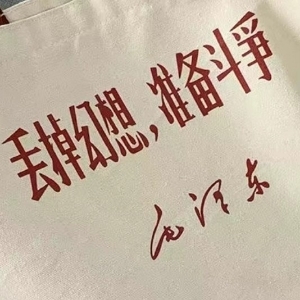 丢掉幻想，准备斗争
毛泽东